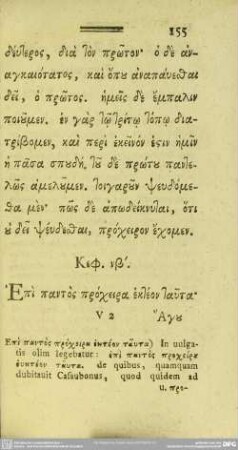 155
δεύτερος, διὰ τὸν πρῶτον· ὁ δὲ ἀν-
αγκαιότατος, καὶ ὅπȣ ἀναπαύεσθαι
δεῖ, ὁ πρῶτος. ἡμεῖς δὲ ἔμπαλιν
ποιοῦμεν. ἐν γὰρ τῷ τρίτῳ τόπῳ δια-
τρίβομεν, καὶ περὶ ἐκεῖνόν ἐστιν ἡμῖν
ἡ πᾶσα σπουδή, τοῦ δὲ πρώτου παντε-
λῶς ἀμελοῦμεν. τοιγαροῦν ψευδόμε-
θα μέν· πῶς δὲ ἀποδείκνυται, ὅτι
οὐ δεῖ ψεύδεσθαι, πρόχειρον ἔχομεν.
Κεφ. νβʹ.
Ἐπὶ παντὸς πρόχειρα ἑκτέον ταῦτα·
V 2
Ἄγου
Επι παντὸς πρόχειρα ἑκτέον ταῦτα) In uulga-
tis olim legebatur: ἐπὶ παντὸς προχείρα
ἑυκτέον ταυτα. de quibus, quamquam
dubitauit Casaubonus, quod quidem ad
u. pro-